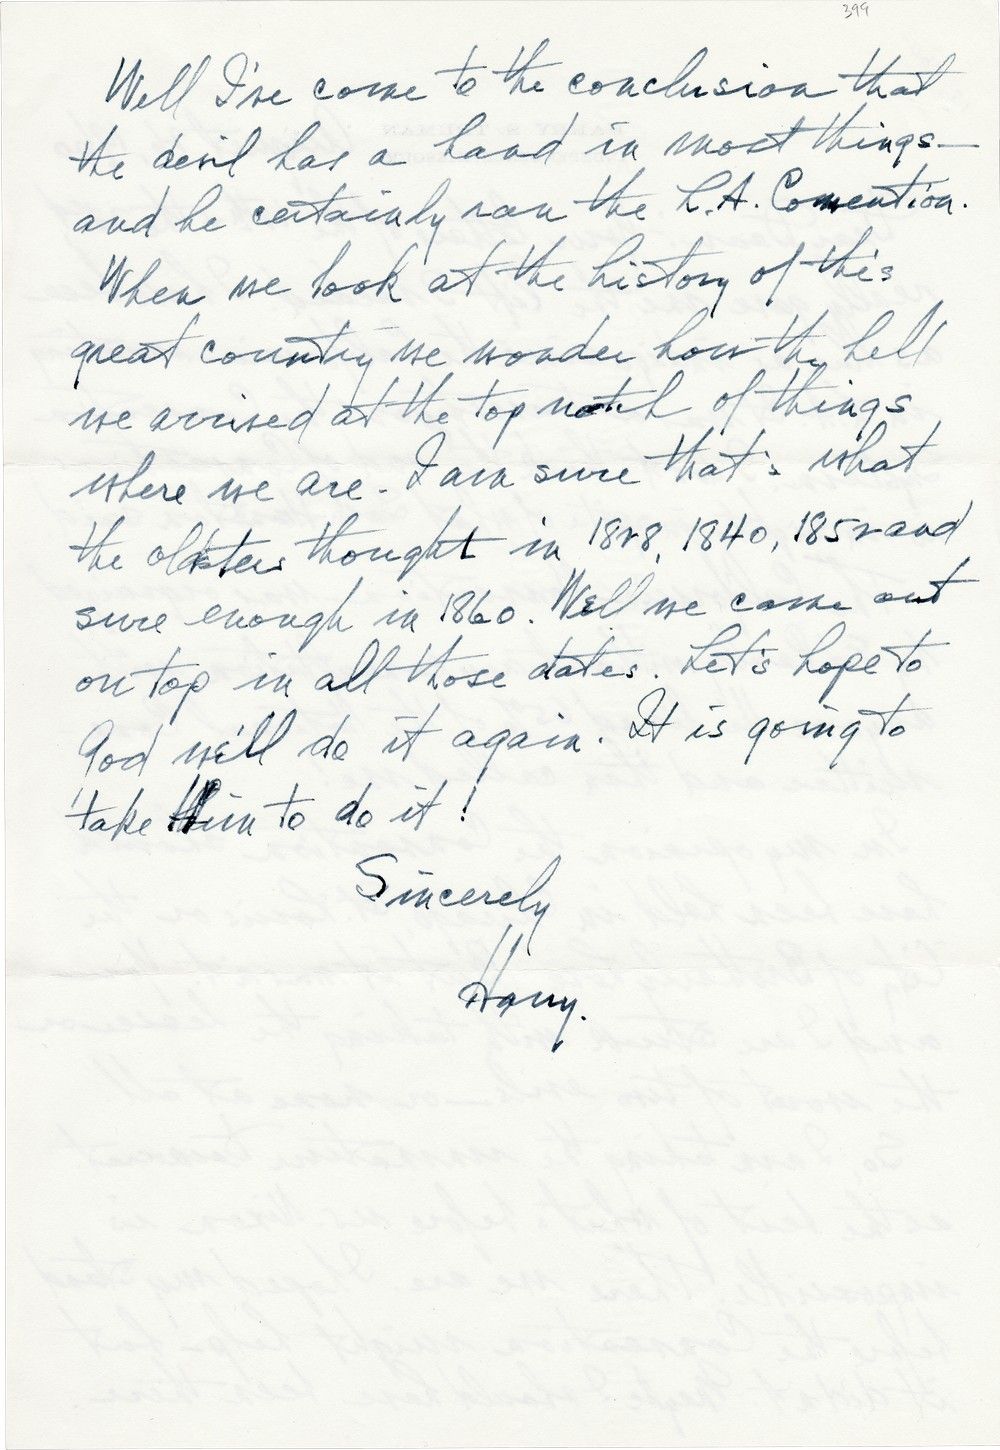 399
Well I've come to the conclusion that
the devil has a hand in most things—
and he certainly ran the L.A. Convention.
When we look at the history of this
great country we wonder how the hell
we arrived at the top notch of things
where we are. I am sure that's what
the oldsters thought in 1828, 1840, 1852 and
sure enough in 1860. Well we came out
on top in all those dates. Let's hope to
God we'll do it again. It is going to
take Him to do it!
Sincerely
Harry.